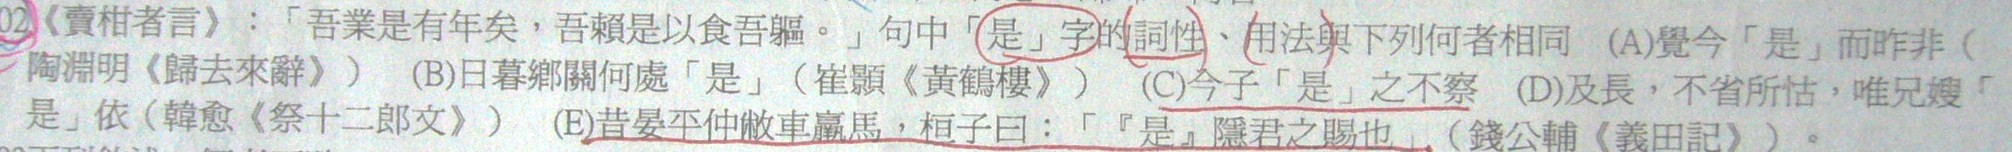 02《賣柑者言》：「吾業是有年矣，吾賴是以食吾軀。」句中「是」字的詞性、用法與下列何者相同　(A)覺今「是」而昨非（
陶淵明《歸去來辭》）　(B)日暮鄉關何處「是」（崔顥《黃鶴樓》）　(C)今子「是」之不察　(D)及長，不省所怙，唯兄嫂「
是」依（韓愈《祭十二郎文》）　(E)昔晏平仲敝車羸馬，桓子曰：「『是』隱君之賜也」（錢公輔《義田記》）。